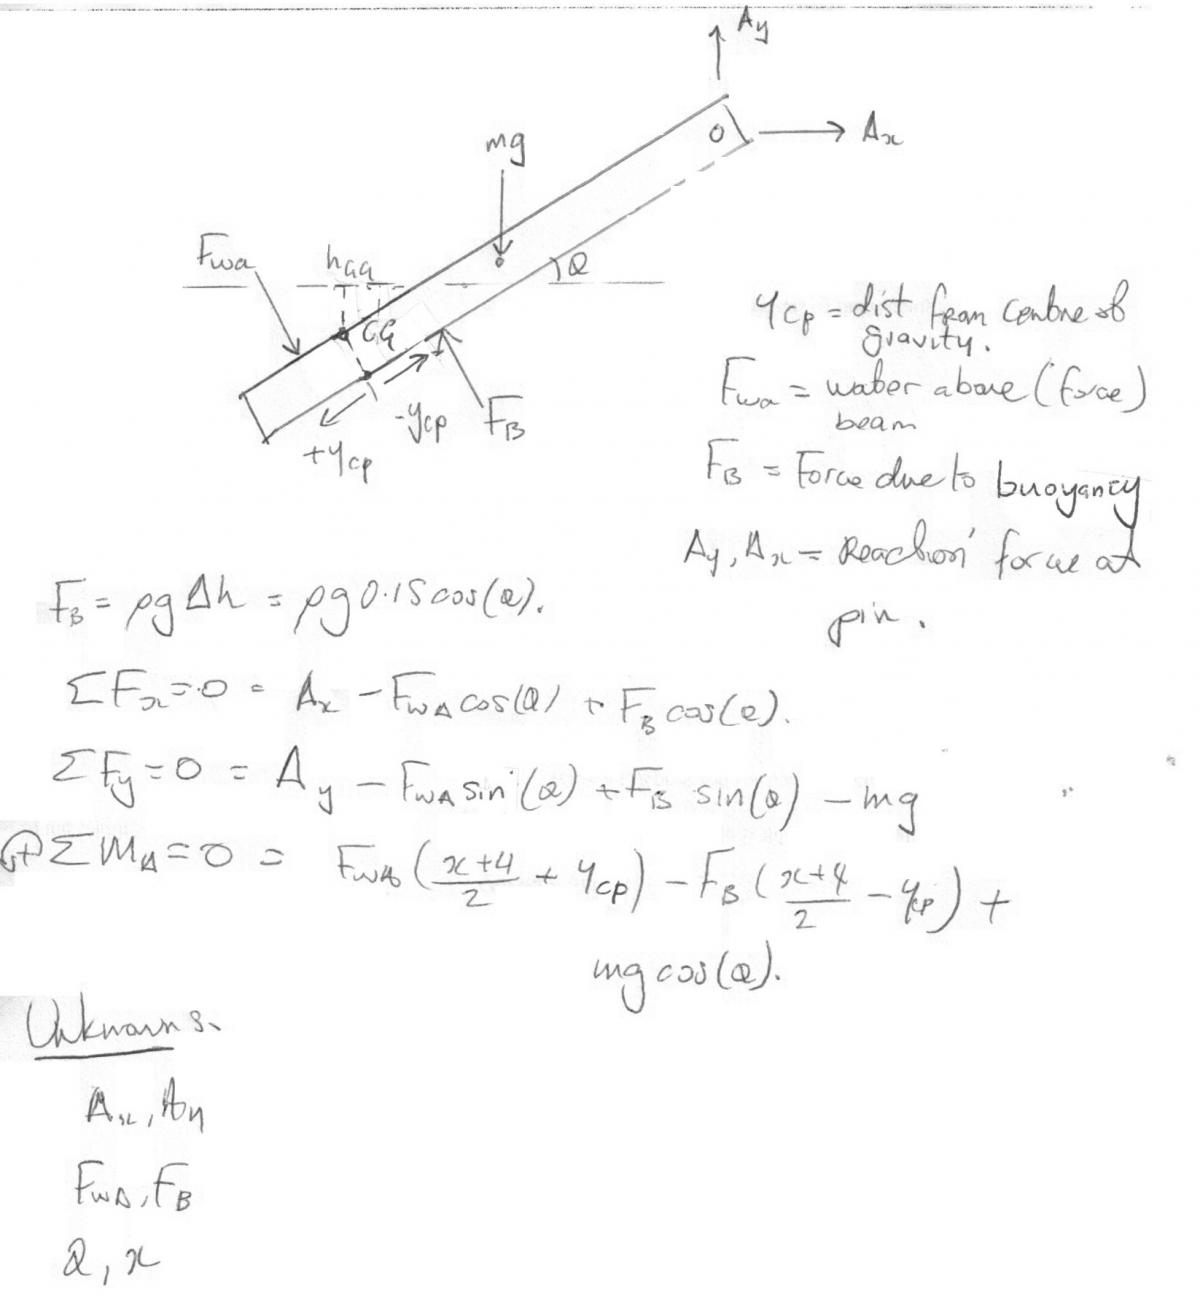 Ay
O
Ax
mg
Fwa
hGG
θ
CG
FB
-ycp
+ycp
ycp = dist from centre of
gravity.
Fwa = water above (force)
beam
FB = Force due to buoyancy
Ay, Ax = Reaction force at
pin.
FB = ρgΔh = ρg0.15cos(θ).
ΣFx=0 = Ax - FwA cos(θ) + FB cos(θ).
ΣFy=0 = Ay - FwA sin(θ) + FB sin(θ) - mg
ΣMA=0 = FwA (x+4/2 + ycp) - FB (x+4/2 - ycp) +
mg cos(θ).
Unknowns.
Ax, Ay
FwA, FB
θ, x